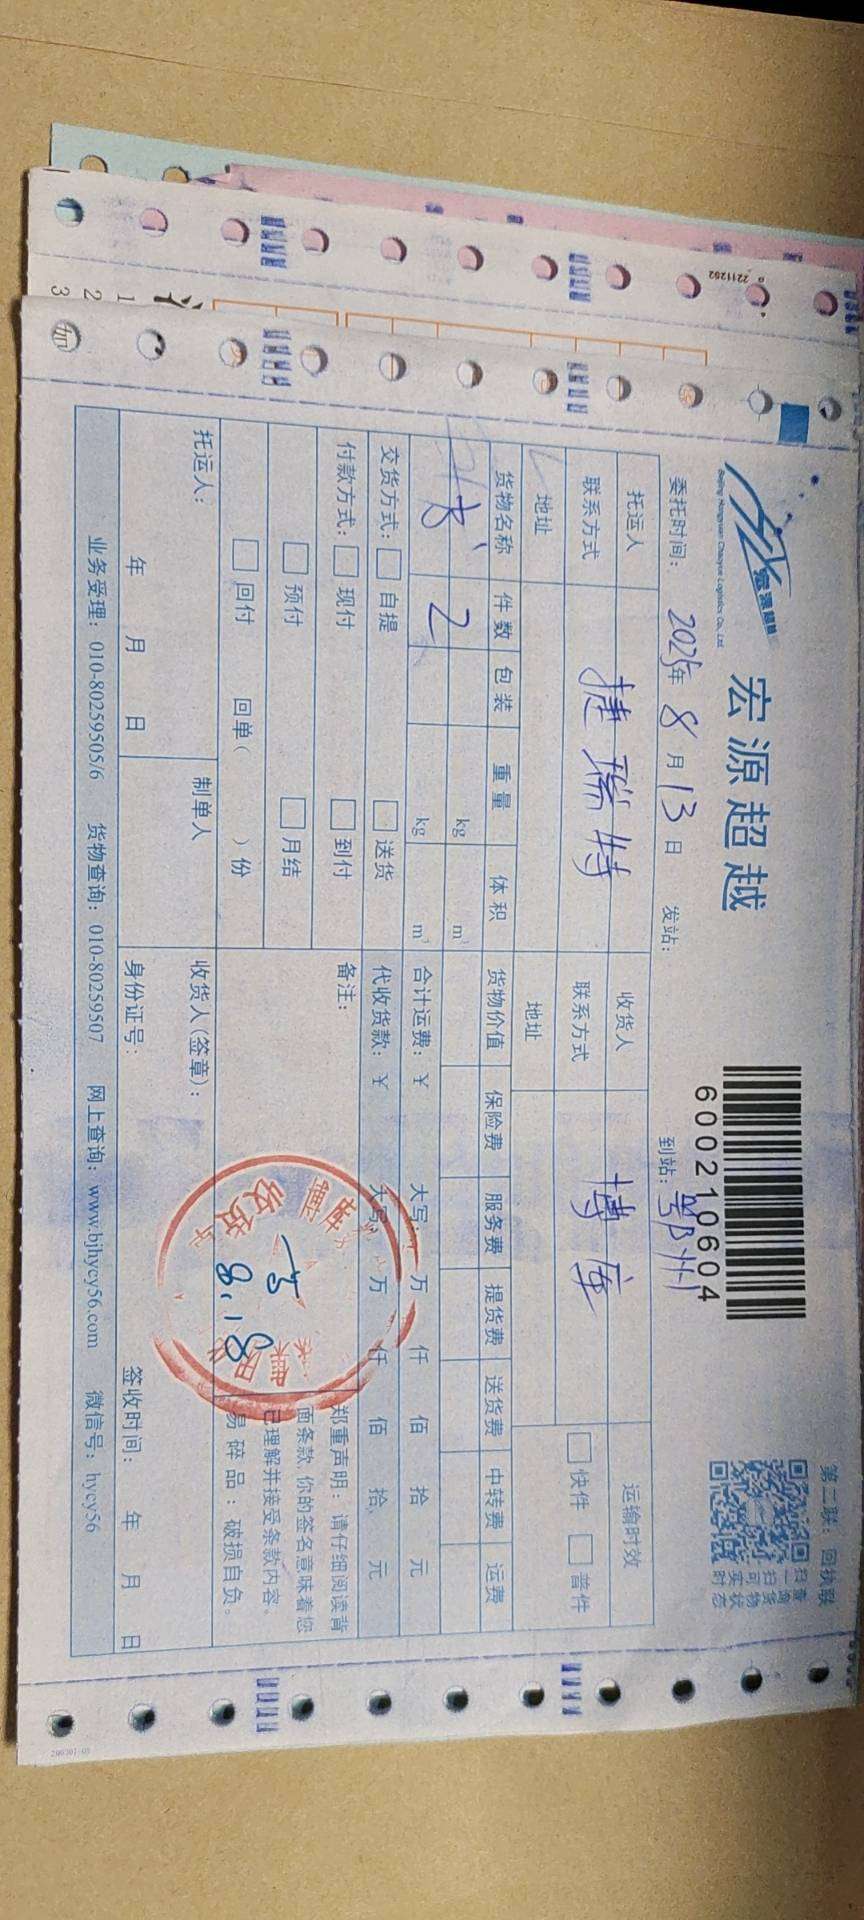 第二联：回执联
宏源超越
Beijing Hongyuan Chaoyue Logistics Co., Ltd.
宏源超越
600210604
扫一扫
查询货物实时状态
委托时间：2025年8月13日 发站： 到站：鄂州
托运人 捷瑞特 收货人 博库 运输时效
联系方式 联系方式 快件 普件
地址 地址
货物名称 件数 包装 重量 体积 货物价值 保险费 服务费 提货费 送货费 中转费 运费
书 2 kg m³
kg m³ 合计运费：¥ 大写： 万 仟 佰 拾 元
交货方式： 自提 送货 代收货款：¥ 大写： 万 仟 佰 拾 元
付款方式： 现付 到付 备注：
预付 月结
回付 回单（ ）份
8.18
收货
郑重声明：请仔细阅读背
面条款，你的签名意味着您
已理解并接受条款内容。
易碎品：破损自负。
托运人： 制单人 收货人(签章)：
年 月 日 身份证号： 签收时间： 年 月 日
业务受理：010-80259505/6 货物查询：010-80259507 网上查询：www.bjhycy56.com 微信号：hycy56
2211252
1
2
3